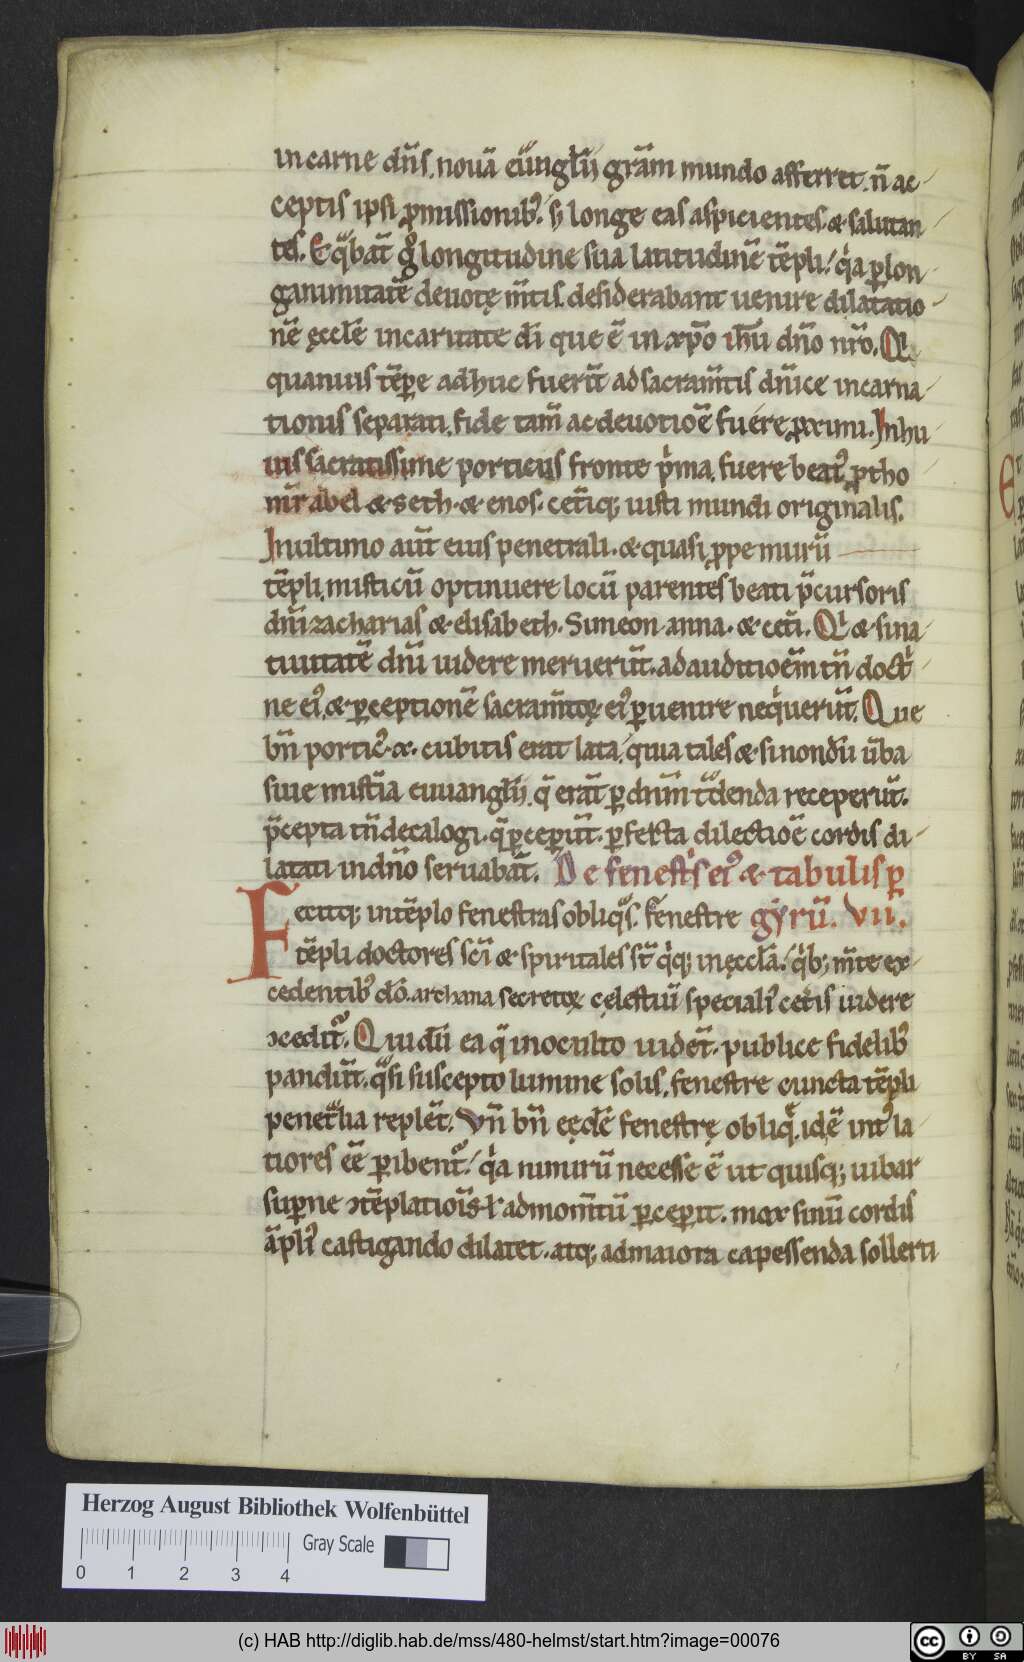 in carne dn̄s. nouā eu̅ngl̅ij grām mundo afferret. n̄ ac-
ceptis ipsi ꝓmissionib᷒. s; longe eas aspicientes. & salutan-
tes. Eq̊bāt g̊ longitudine sua latitudinē tēpli. q̇a ꝑ lon-
ganimitatē deuotę m̄tis. desiderabant uenire dilatatio-
nē ęccl̄ę in caritate dī que ē in xp̄o ih̄u dn̄o nr̄o. Qi
quamuis tēꝑe adhuc fuerīt ad sacram̄tis dn̄ice incarna-
tionis separati. fide tam̄ ac deuotiōe fuere ꝓximi. In hu-
ius sacratissime porticus fronte ṗma. fuere beat᷒ ꝓtho
mr̄ abel & seth. & enos. cet̄iq; iusti mundi originalis.
In ultimo aut̄ eius penetrali. & quasi ꝓpe murū
tēpli misticū optinuere locū parentes beati p̄cursoris
dn̄i zacharias & elisabeth. Simeon. anna. & cet̄i. Qi & si na-
tiuitatē dn̄i uidere meruerūt. ad auditiōem tn̄ docṫ-
ne ei᷒. & ꝑceptionē sacram̄toꝝ ei᷒ ꝑuenire neq̇uerūt. Que
bn̄ portic᷒ .x. cubitis erat lata. quia tales & si nondū u̅ba
siue mist̄ia euuangl̄ij. q̄ erāt ꝑ dn̄m t̊denda receperūt.
p̄cepta tn̄ decalogi. q̄ ꝑceꝑūt. ꝑfecta dilectiōe cordis di-
latati in dn̄o seruabāt. De fenesṫs ei᷒ & tabulis ꝑ
Fecitq; in tēplo fenestras obliq̊s. Fenestre gyrū. VII.
tēpli doctores sc̄i & spiritales st̄ q̇q; in ęccl̄a. q̇b; m̄te ex-
cedentib᷒ dō. archana secretoꝝ cęlestiū speciali᷒ cet̄is uidere
ↄcedit᷑. Qui dū ea q̄ in oculto uidēt. publice fidelib᷒
pandūt. q̊si suscepto lumine solis. fenestre cuncta tēpli
penet̊lia replēt. Vn̄ bn̄ eędē fenestrę obliq̨. idē int᷒ la-
tiores eē ꝑibent᷑. q̇a nimirū necesse ē ut quisq; iubar
suꝑne ↄtēplatiōis. l᷒ ad mom̄tū ꝑceꝑit. mox sinū cordis
āpli᷒ castigando dilatet. atq; ad maiora capessenda sollerti
Herzog August Bibliothek Wolfenbüttel
Gray Scale
0 1 2 3 4
(c) HAB http://diglib.hab.de/mss/480-helmst/start.htm?image=00076
cc BY SA